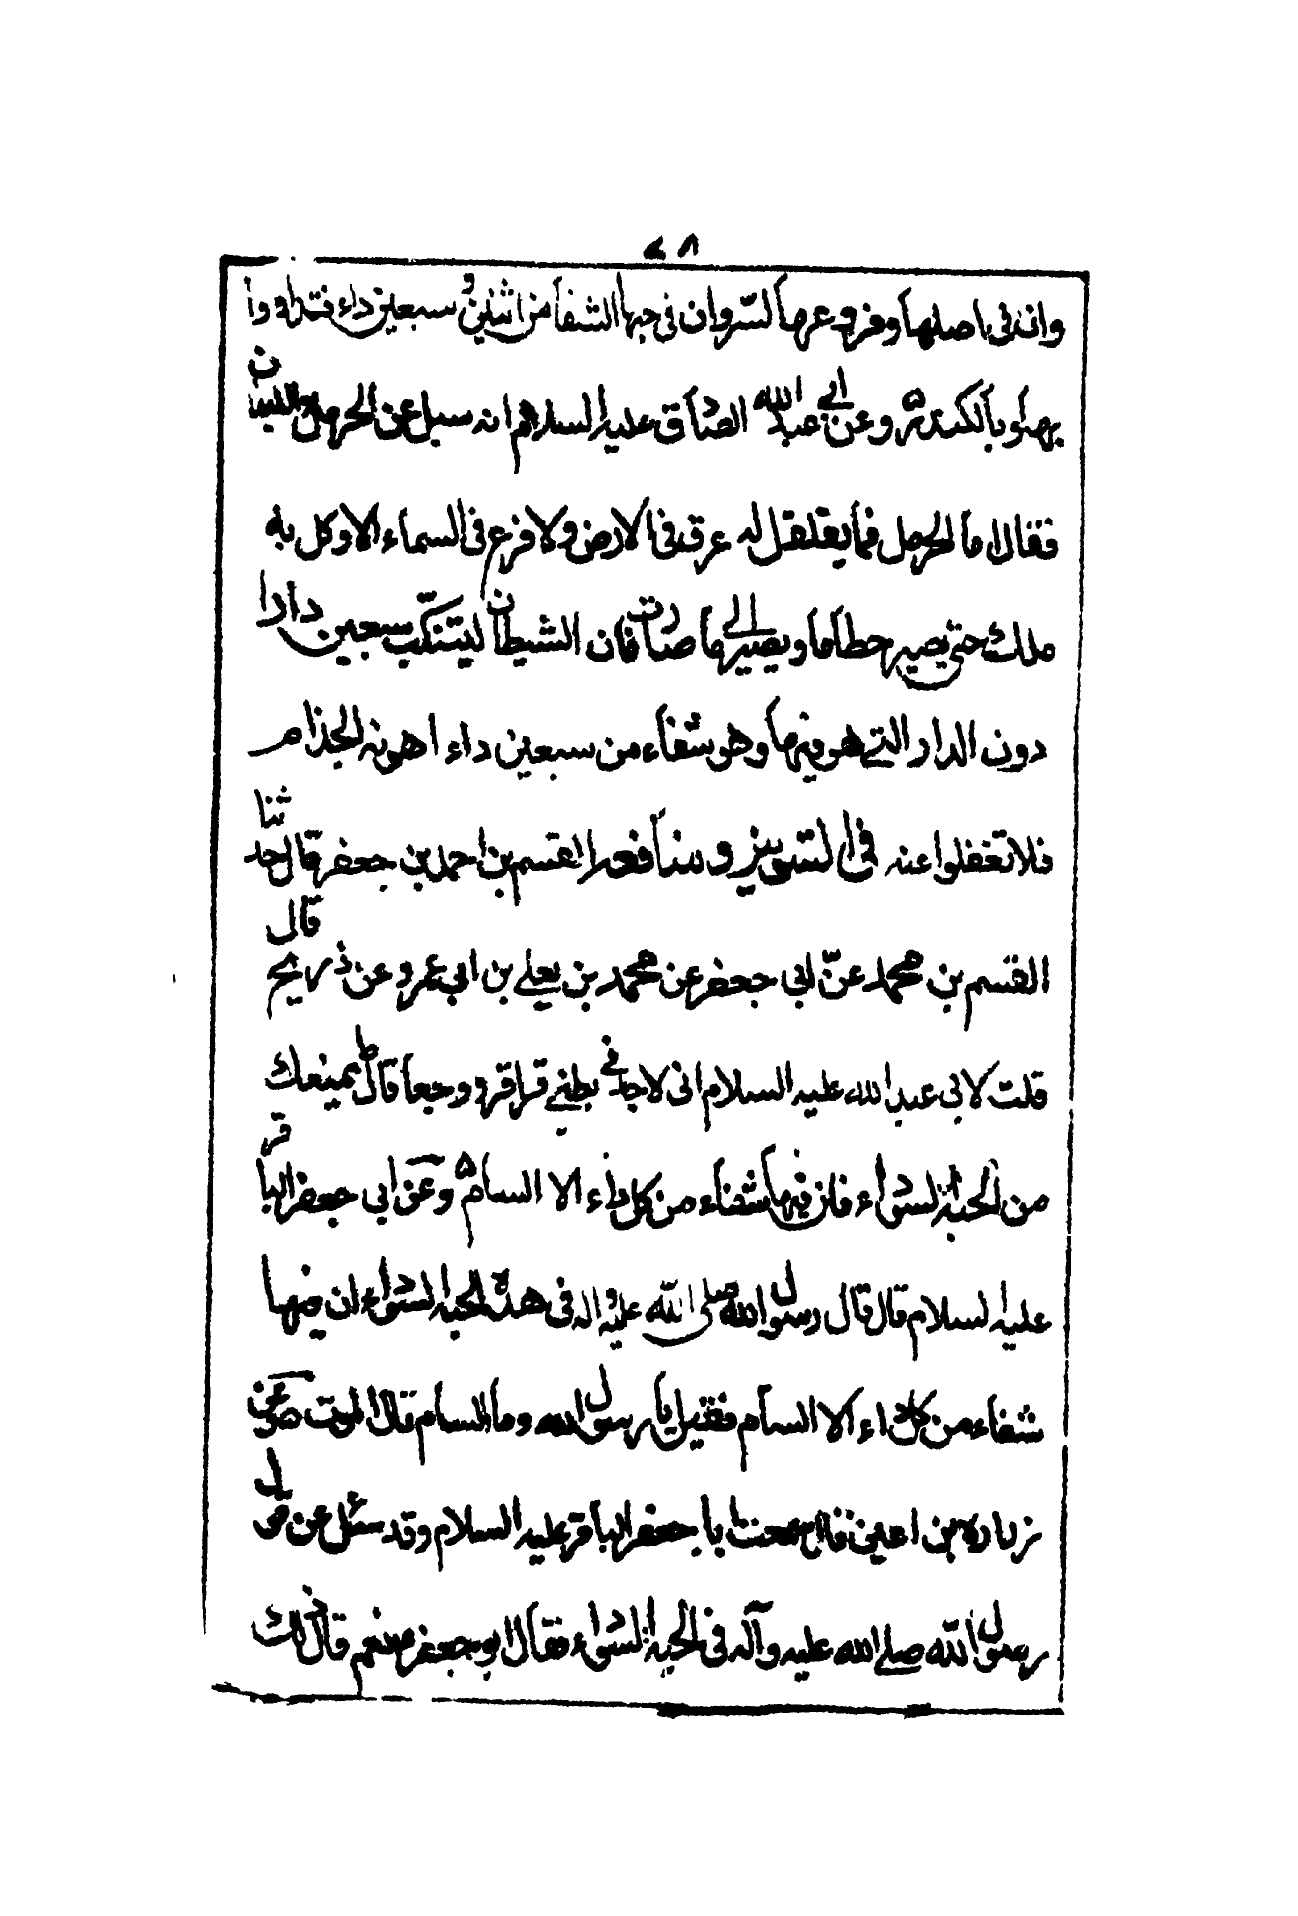 ٤٨
وان في اصلها وفروعها لسر وان في حبها الشفا من اثنين وسبعين داء فتداووا
بها وبالكندر وعن ابي عبد الله الصادق عليه السلام انه سيل عن الحرمل واللبان
فقال اما الحرمل فما يقلقل له عرق في الارض ولا فرع في السماء الا وكل به
ملك حتى يصير حطاما ويصير الى ما صارت فان الشيطان ليتنكب سبعين دارا
دون الدار التي هو فيها وهو شفاء من سبعين داء اهونه الجذام
فلا تغفلوا عنه في الشونيز ومنافعه القسم بن احمد بن جعفر قال حدثنا
القسم بن محمد عن ابي جعفر عن محمد بن يعلى بن ابي عمرو عن ذريح قال
قلت لابي عبد الله عليه السلام اني لاجد في بطني قراقر ووجعا قال ما يمنعك
من الحبة السوداء فان فيها شفاء من كل داء الا السام وعن ابي جعفر الباقر
عليه السلام قال قال رسول الله صلى الله عليه واله في هذه الحبة السوداء ان فيها
شفاء من كل داء الا السام فقيل يا رسول الله وما السام قال الموت وعن
زرارة بن اعين قال سمعت ابا جعفر الباقر عليه السلام وقد سئل عن قول
رسول الله صلى الله عليه وآله في الحبة السوداء فقال ابو جعفر نعم قال ذلك